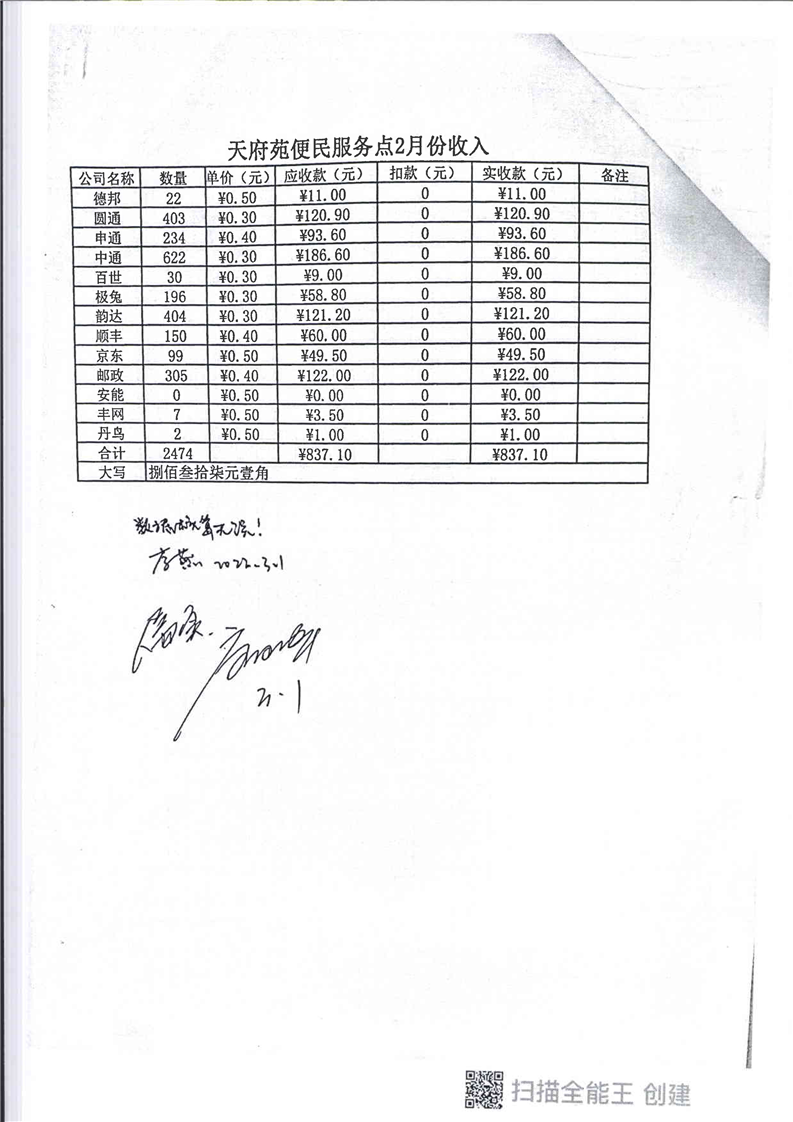 天府苑便民服务点2月份收入
公司名称 数量 单价（元） 应收款（元） 扣款（元） 实收款（元） 备注
德邦 22 ¥0.50 ¥11.00 0 ¥11.00
圆通 403 ¥0.30 ¥120.90 0 ¥120.90
申通 234 ¥0.40 ¥93.60 0 ¥93.60
中通 622 ¥0.30 ¥186.60 0 ¥186.60
百世 30 ¥0.30 ¥9.00 0 ¥9.00
极兔 196 ¥0.30 ¥58.80 0 ¥58.80
韵达 404 ¥0.30 ¥121.20 0 ¥121.20
顺丰 150 ¥0.40 ¥60.00 0 ¥60.00
京东 99 ¥0.50 ¥49.50 0 ¥49.50
邮政 305 ¥0.40 ¥122.00 0 ¥122.00
安能 0 ¥0.50 ¥0.00 0 ¥0.00
丰网 7 ¥0.50 ¥3.50 0 ¥3.50
丹鸟 2 ¥0.50 ¥1.00 0 ¥1.00
合计 2474 ¥837.10 ¥837.10
大写 捌佰叁拾柒元壹角
数据 算无误！
2022.3.1
3.1
扫描全能王 创建